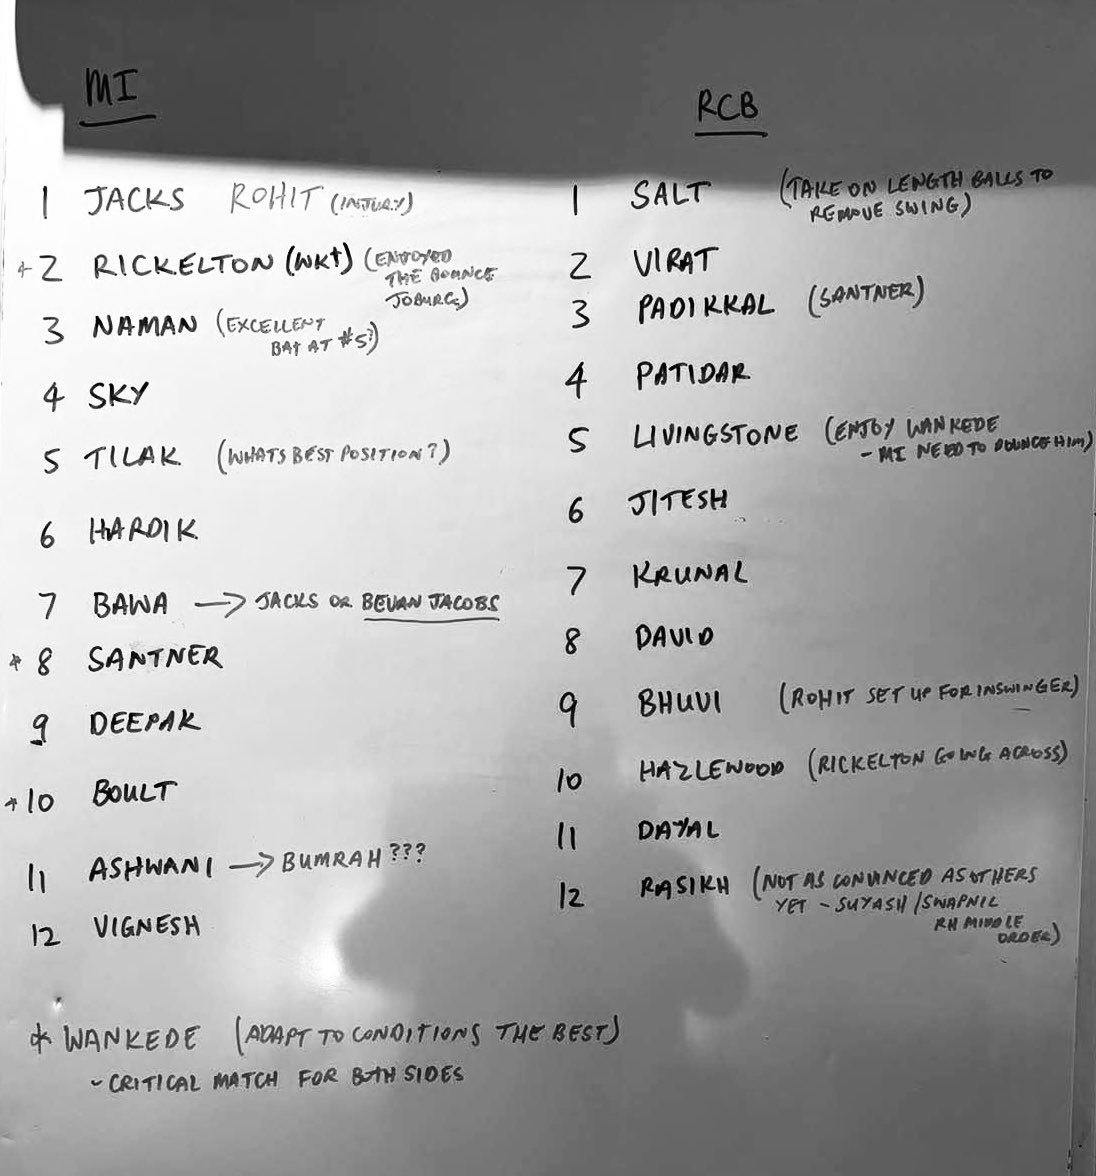 MI
1 JACKS ROHIT (INJURY)
* 2 RICKELTON (WKT) (ENJOYED
THE BOUNCE
JOBURG)
3 NAMAN (EXCELLENT
BAT AT #5?)
4 SKY
5 TILAK (WHATS BEST POSITION?)
6 HARDIK
7 BAWA → JACKS OR BEVAN JACOBS
* 8 SANTNER
9 DEEPAK
* 10 BOULT
11 ASHWANI → BUMRAH ???
12 VIGNESH
* WANKEDE (ADAPT TO CONDITIONS THE BEST)
- CRITICAL MATCH FOR BOTH SIDES
RCB
1 SALT (TAKE ON LENGTH BALLS TO
REMOVE SWING)
2 VIRAT
3 PADIKKAL (SANTNER)
4 PATIDAR
5 LIVINGSTONE (ENJOY WANKEDE
- MI NEED TO BOUNCE HIM)
6 JITESH
7 KRUNAL
8 DAVID
9 BHUVI (ROHIT SET UP FOR INSWINGER)
10 HAZLEWOOD (RICKELTON GOING ACROSS)
11 DAYAL
12 RASIKH (NOT AS CONVINCED AS OTHERS
YET - SUYASH/SWAPNIL
RH MIDDLE
ORDER)